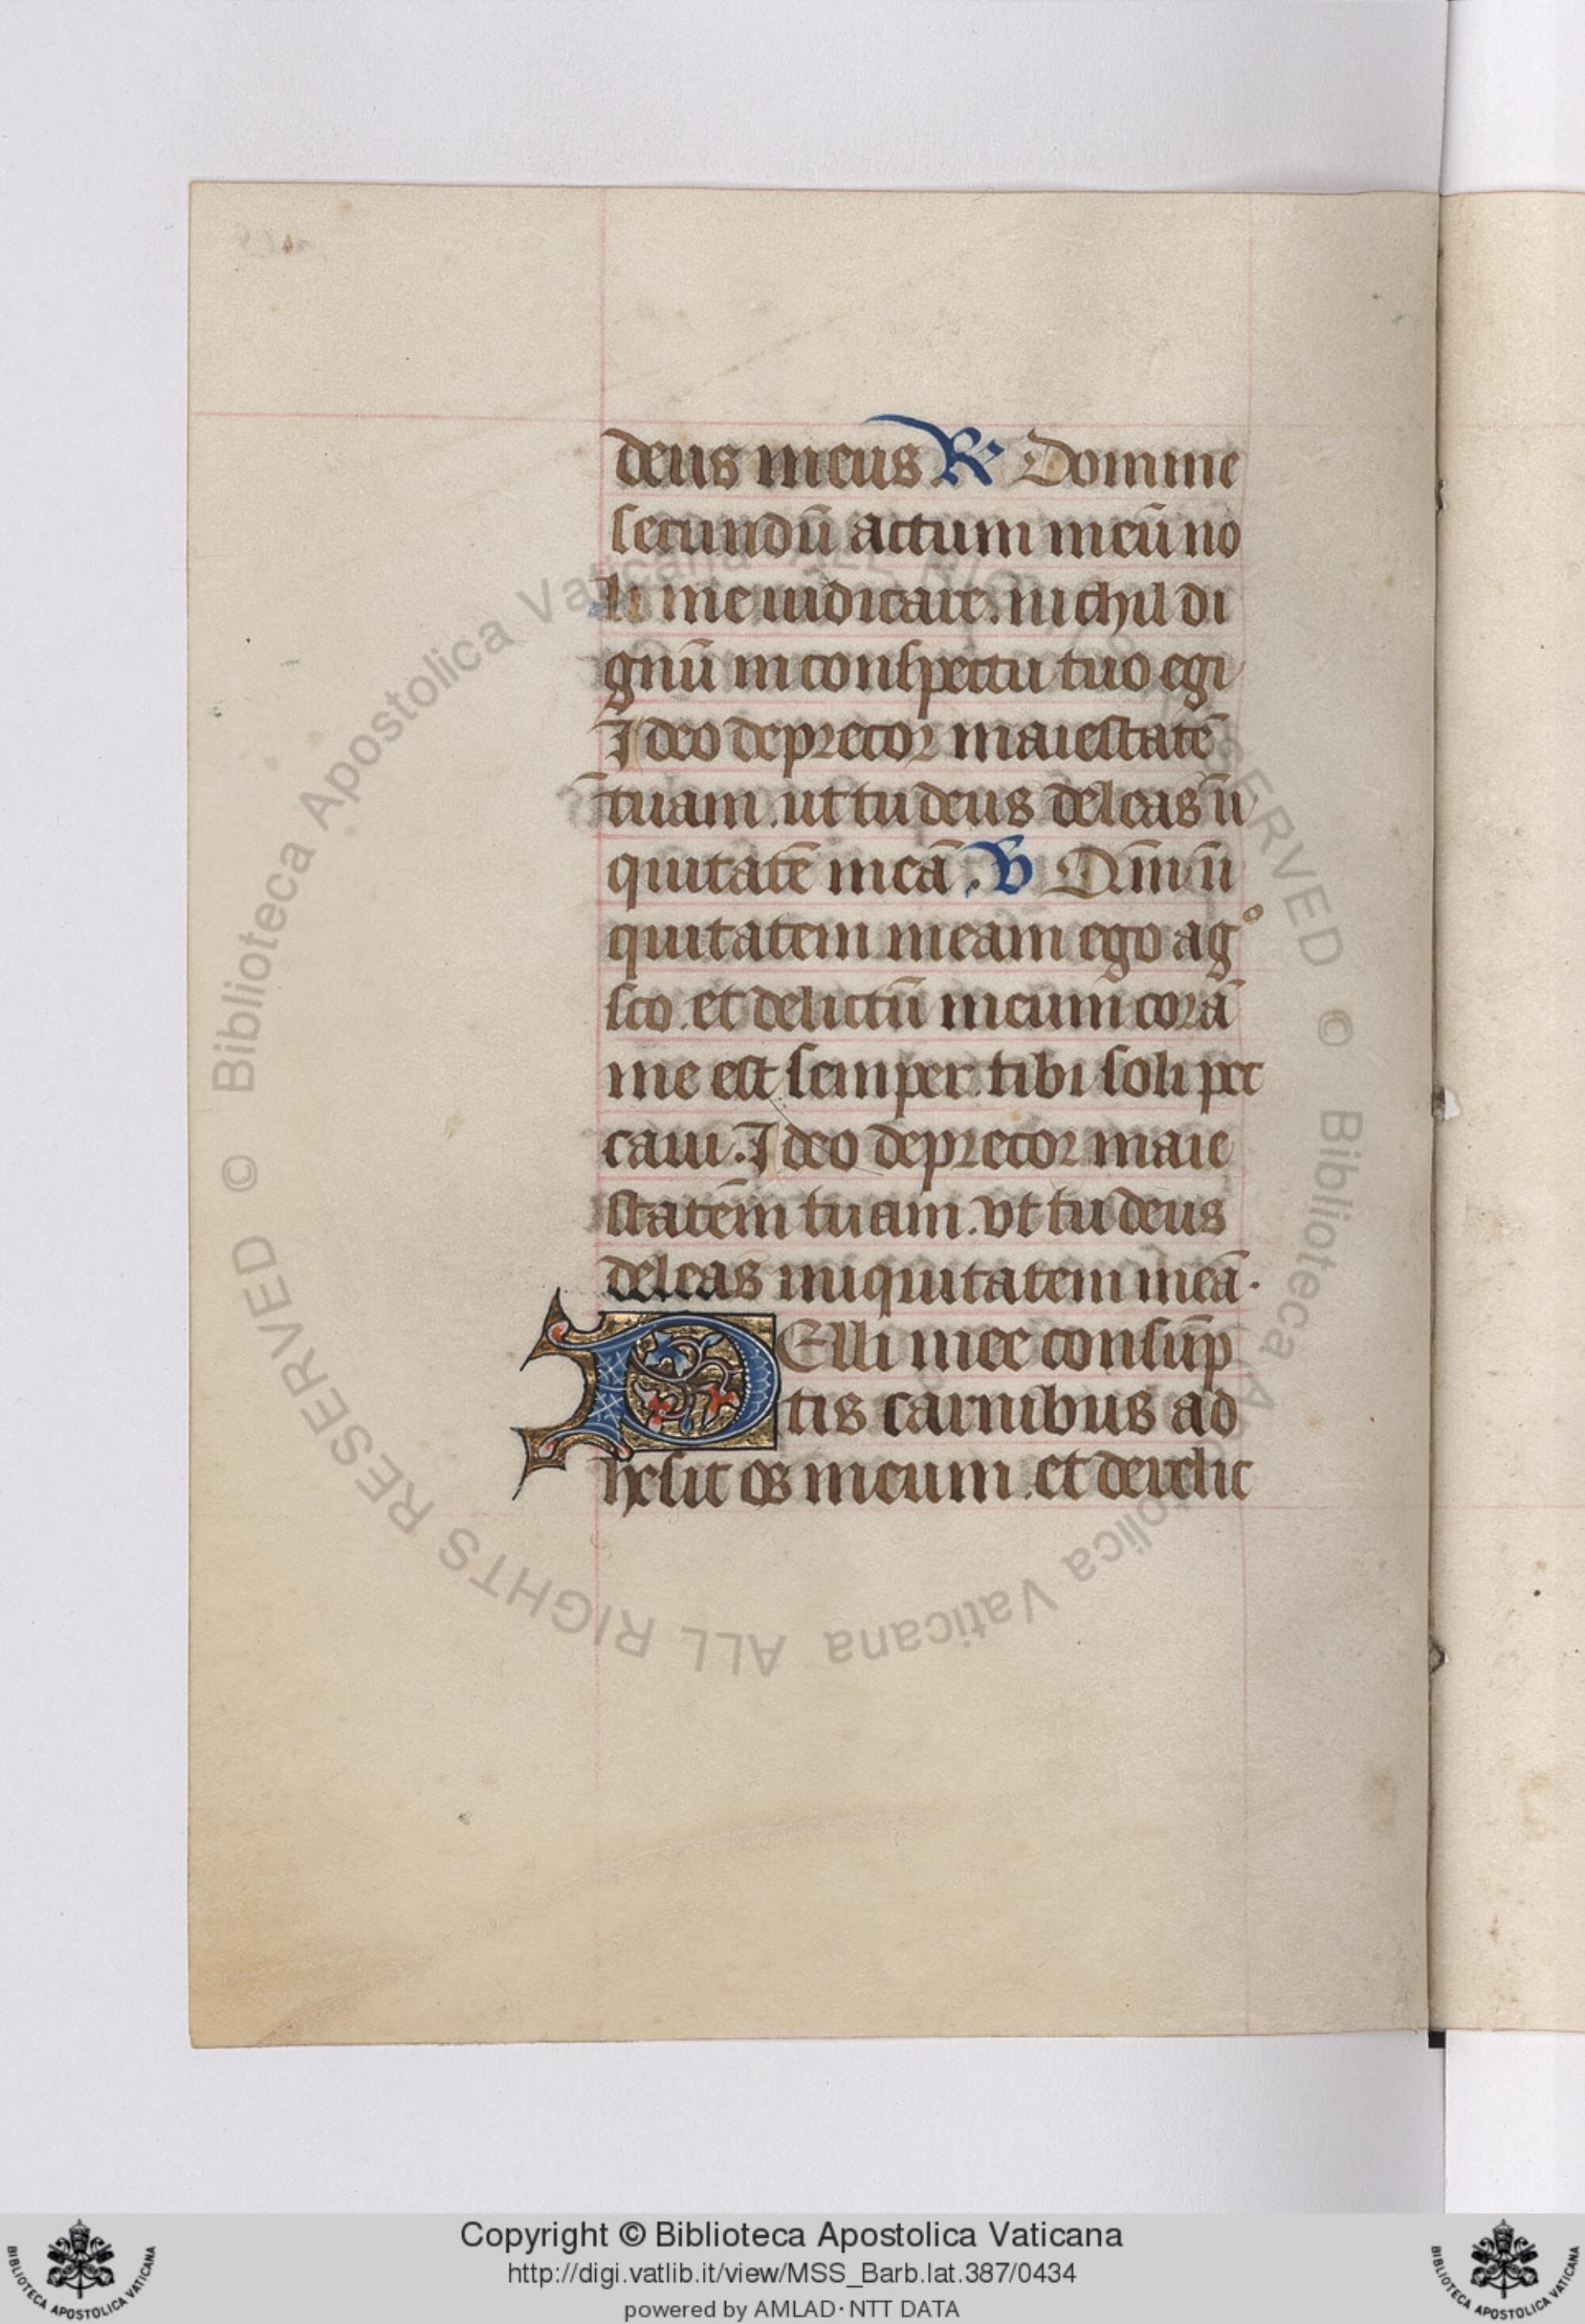 deus meus ℟ Domine
secundū actum meū no
li me iudicare. nichil di
gnū in conspectu tuo egi
Ideo deprecor maiestatē
tuam. ut tu deus deleas īi
quitatē meā. ℣ Qm̄ īi
quitatem meam ego agͦ
sco. et delictū meum corā
me est semper. tibi soli pec
caui. Ideo deprecor maie
statem tuam. vt tu deus
deleas iniquitatem meā.
PElli mee consūp
tis carnibus ad
hesit os meum. et derelic
© Biblioteca Apostolica Vaticana ALL RIGHTS RESERVED © Biblioteca Apostolica Vaticana ALL RIGHTS RESERVED
Copyright © Biblioteca Apostolica Vaticana
http://digi.vatlib.it/view/MSS_Barb.lat.387/0434
powered by AMLAD·NTT DATA
BIBLIOTECA APOSTOLICA VATICANA
BIBLIOTECA APOSTOLICA VATICANA